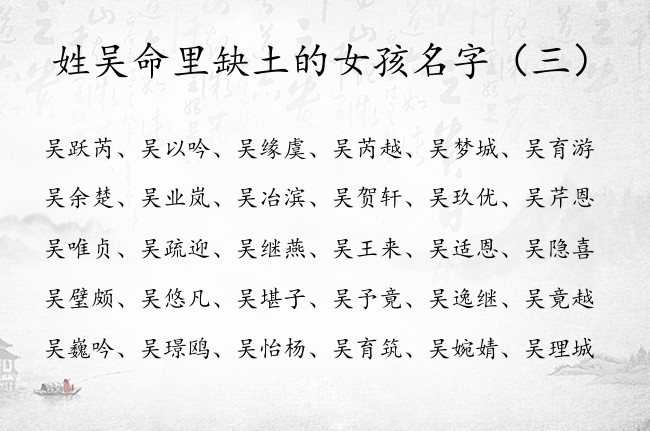 姓吴命里缺土的女孩名字（三）
吴跃芮、吴以吟、吴缘虞、吴芮越、吴梦城、吴育游
吴余楚、吴业岚、吴冶滨、吴贺轩、吴玖优、吴芹恩
吴唯贞、吴疏迎、吴继燕、吴王来、吴适恩、吴隐喜
吴璧颇、吴悠凡、吴堪子、吴予竟、吴逸继、吴竟越
吴巍吟、吴璟鸥、吴怡杨、吴育筑、吴婉婧、吴理城